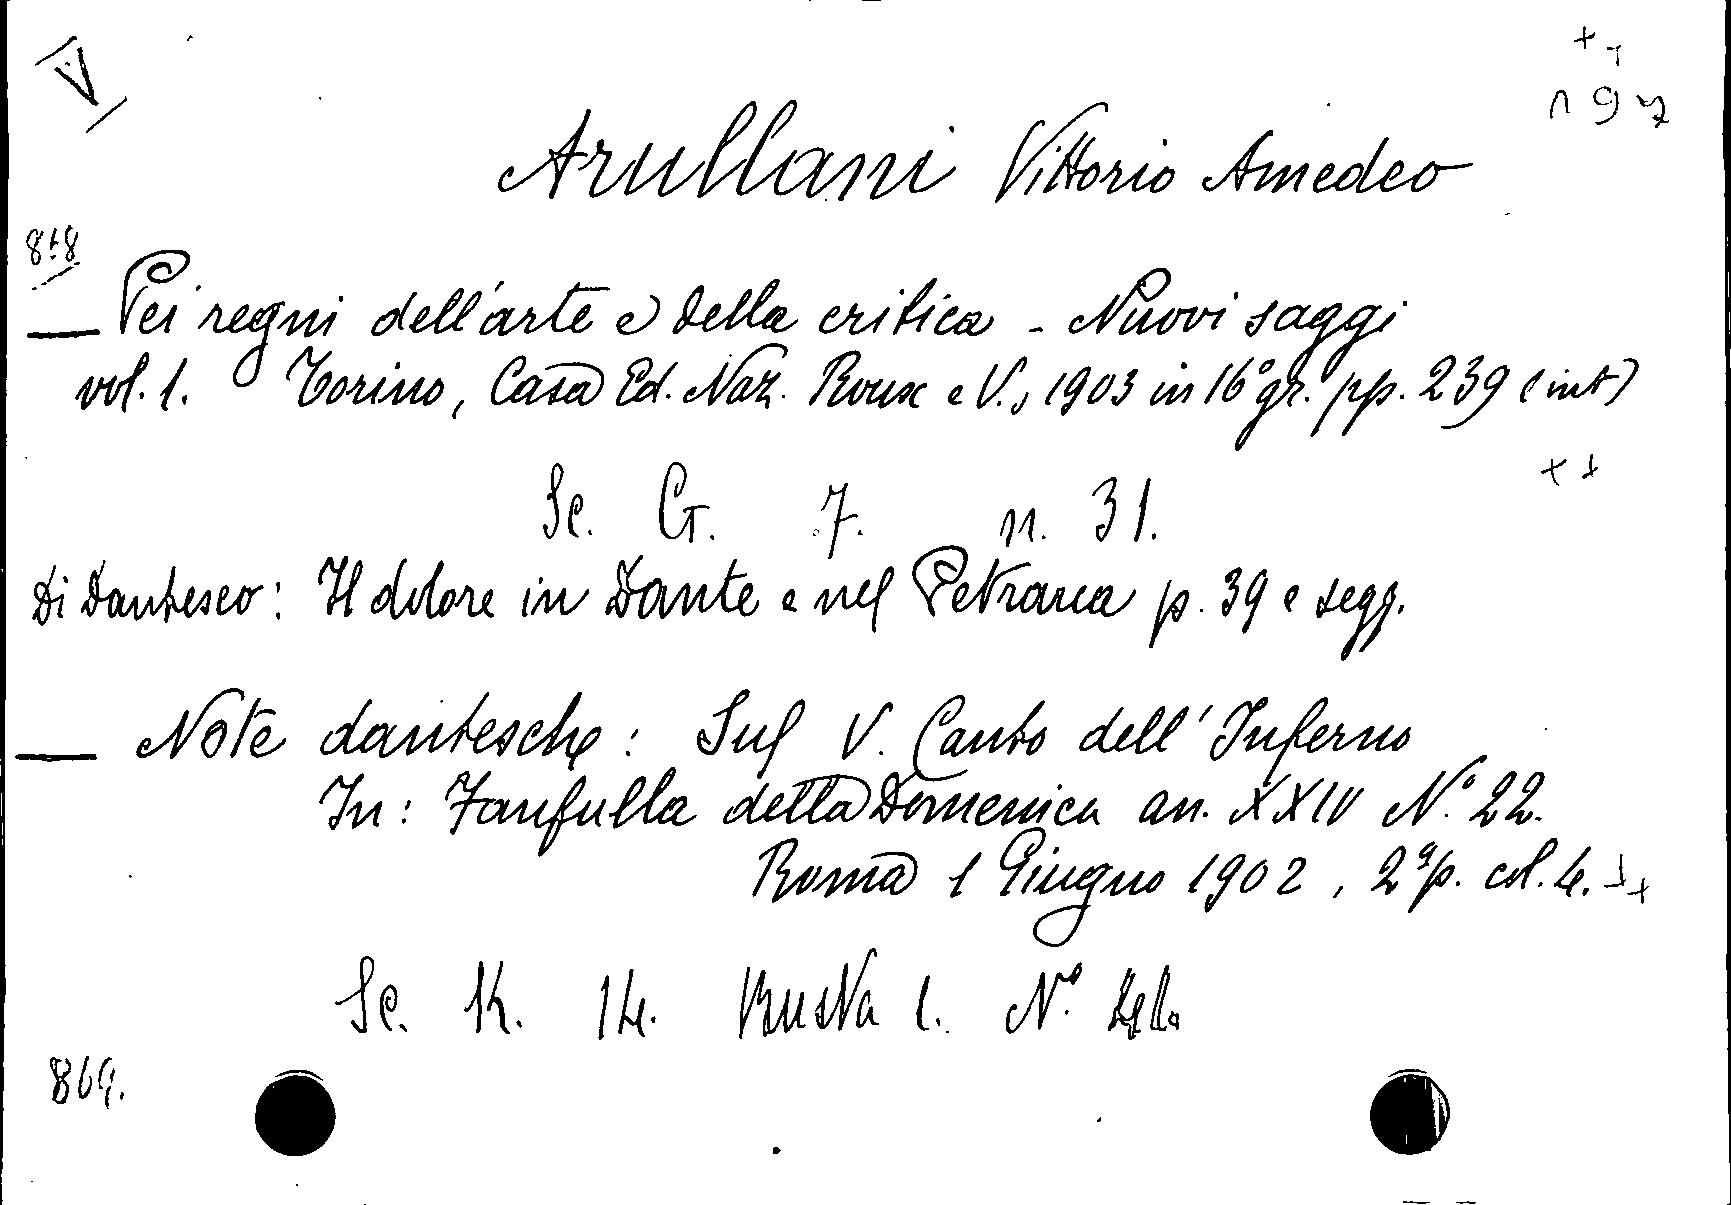 V
197
Arullani Vittorio Amedeo
8.8
Pei regni dell'arte e della critica - Nuovi saggi
vol. 1. Torino, Casa Ed. Naz. Roux e V., 1903 in 16° gr. pp. 239 (int)
Sc. G. 7. n. 31.
Di Dantesco: Il dolore in Dante e nel Petrarca p. 39 e segg.
Note dantesche: Sul V. Canto dell'Inferno
In: Fanfulla della Domenica an. XXIV N° 22.
Roma 1 Giugno 1902, 2ª p. col. 4.
Sc. K. 14. Busta 1. N°
869.